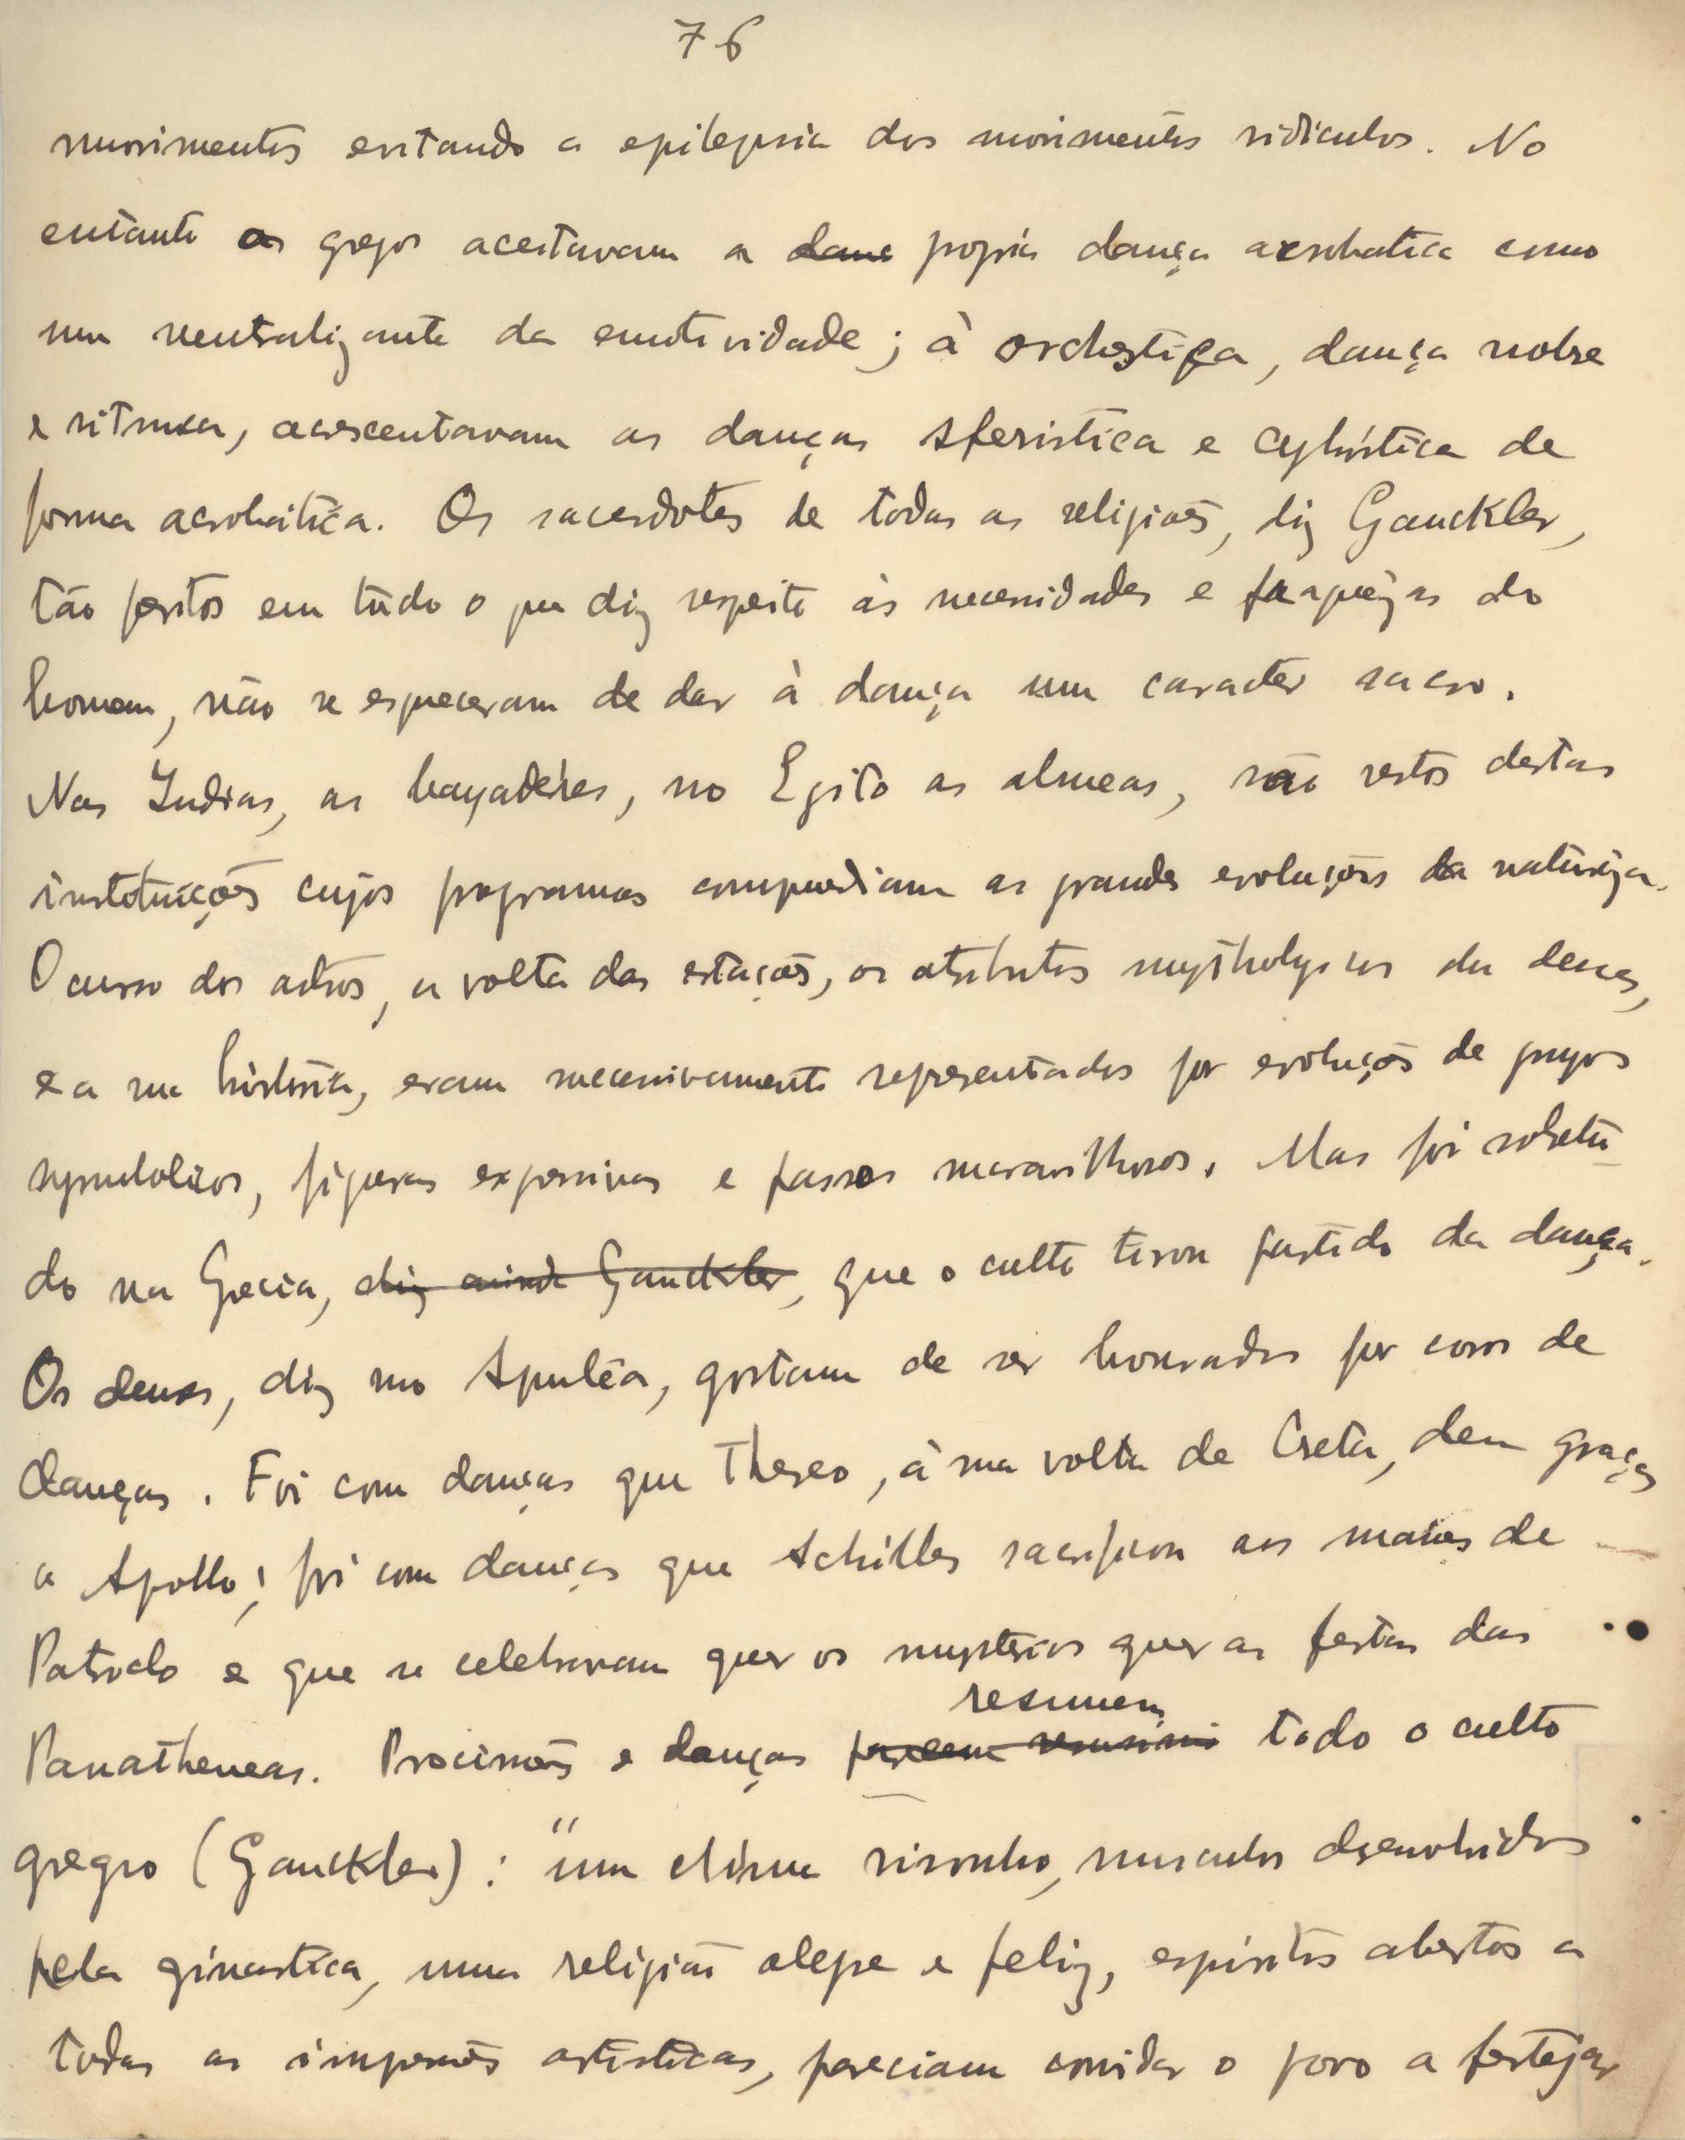 76
movimentos evitando a epilepsia dos movimentos ridiculos. No
entanto os gregos aceitavam a danc propria dança acrobatica como
um neutralizante da emotividade; à orchestica, dança nobre
e ritmica, acrescentavam as danças sferistica e cybistica de
forma acrobática. Os sacerdotes de todas as religiões, diz Gauckler,
tão peritos em tudo o que diz respeito às necessidades e fraquezas do
homem, não se esqueceram de dar à dança um caracter sacro.
Nas Indias, as bayadéres, no Egito as almeas, são restos destas
instituições cujos programas compendiam as grandes evoluções da natureza.
O curso dos astros, a volta das estações, os atributos mythologicos dos deuses,
e a sua história, eram sucessivamente representados por evoluções de grupos
symbolicos, figuras expressivas e passos maravilhosos. Mas foi sobretu-
do na Grecia, diz ainda Gauckler, que o culto tirou partido da dança.
Os deuses, diz-nos Apuléa, gostam de ser honrados por coros de
danças. Foi com danças que Theseo, à sua volta de Creta, deu graças
a Apollo; foi com danças que Achilles sacrificou aos manes de
Patroclo e que se celebravam quer os mysterios quer as festas das
Panatheneas. Procissões e danças parecem resumir resumem todo o culto
gregro (Gauckler): "um clima risonho, musculos desenvolvidos
pela ginastica, uma religião alegre e feliz, espiritos abertos a
todas as impressões artisticas, pareciam convidar o povo a festejar